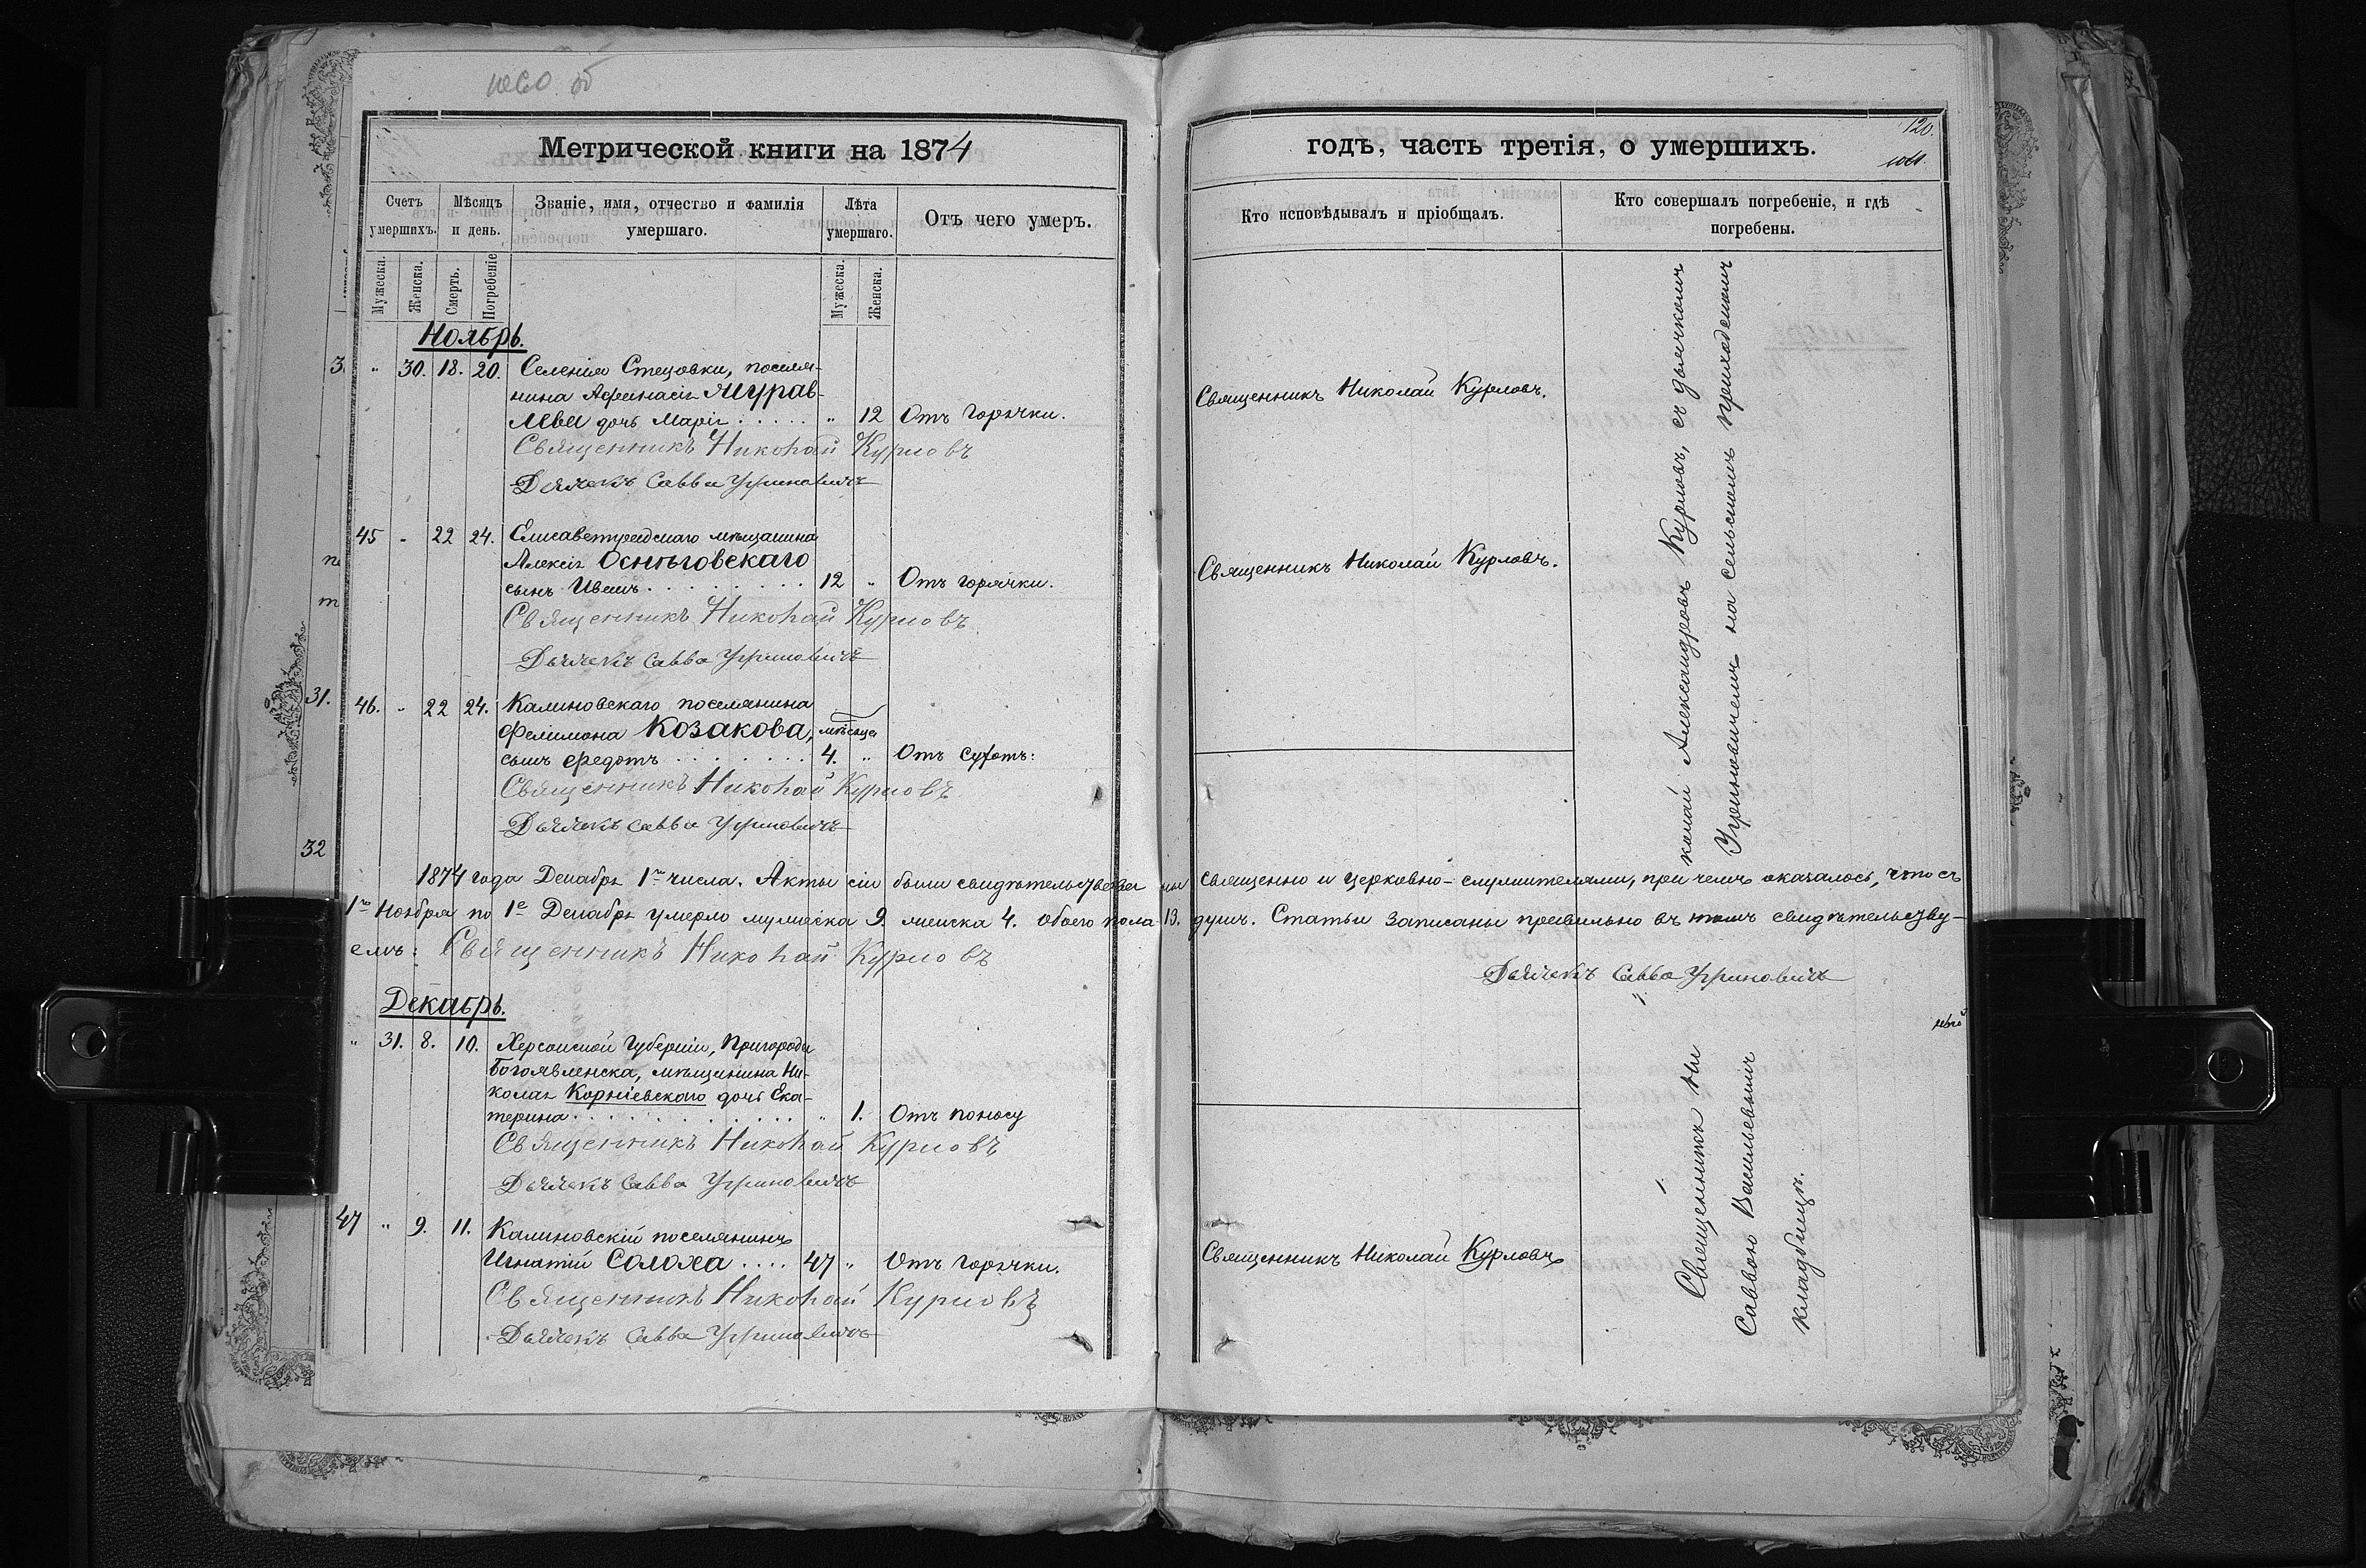 Метрической книги на 1874
Счетъ умершихъ.
Мѣсяцъ и день.
Званіе, имя, отчество и фамилія умершаго.
Лѣта умершаго.
Отъ чего умеръ.
Мужеска.
Женска.
Смерть.
Погребеніе
Мужеска.
Женска.
Ноябрь.
" 30. 18. 20. Селенія Стецовки, поселя-
нина Афанасія Мурав-
лева дочь Марія . . . . . " 12 Отъ горячки.
Священникъ Николай Курловъ
Дьячекъ Савва Угриновичъ
45 " 22 24. Елисаветградскаго мѣщанина
Алексія Оснѣговскаго
сынъ Иванъ . . . . . . . . . 12 " Отъ горячки.
Священникъ Николай Курловъ
Дьячекъ Савва Угриновичъ
46. " 22 24. Калиновскаго поселянина
Филимона Козакова, мѣсяца
сынъ Федотъ . . . . . . . . 4. " Отъ сухотъ:
Священникъ Николай Курловъ
Дьячекъ Савва Угриновичъ
1874 года Декабря 1го числа. Акты сіи были свидѣтельствова
1го Ноября по 1е Декабря умерло мужеска 9. женска 4. обоего пола 13.
емъ: Священникъ Николай Курловъ
Декабрь.
" 31. 8. 10. Херсонской Губерніи, Пригорода
Богоявленска, мѣщанина Ни-
колая Корніевскаго дочь Ека-
терина . . . . . . . . . . . . " 1. Отъ поносу
Священникъ Николай Курловъ
Дьячекъ Савва Угриновичъ
47 " 9. 11. Калиновскій поселянинъ
Игнатій Солоха . . . . 47 " Отъ горячки.
Священникъ Николай Курловъ
Дьячекъ Савва Угриновичъ
3
31.
32
годъ, часть третія, о умершихъ.
120.
Кто исповѣдывалъ и пріобщалъ.
Кто совершалъ погребеніе, и гдѣ погребены.
Священникъ Николай Курловъ.
Священникъ Николай Курловъ.
ны священно и церковно-служителями, при чемъ оказалось, что съ
душъ. Статьи записаны правильно въ томъ свидѣтельству-
Дьячекъ Савва Угриновичъ
Священникъ Николай Курловъ
Священникъ Ни
колай Александровъ Курловъ, съ дьячкомъ
Саввою Васильевымъ
Угриновичемъ на сельскомъ приходскомъ
кладбищѣ.